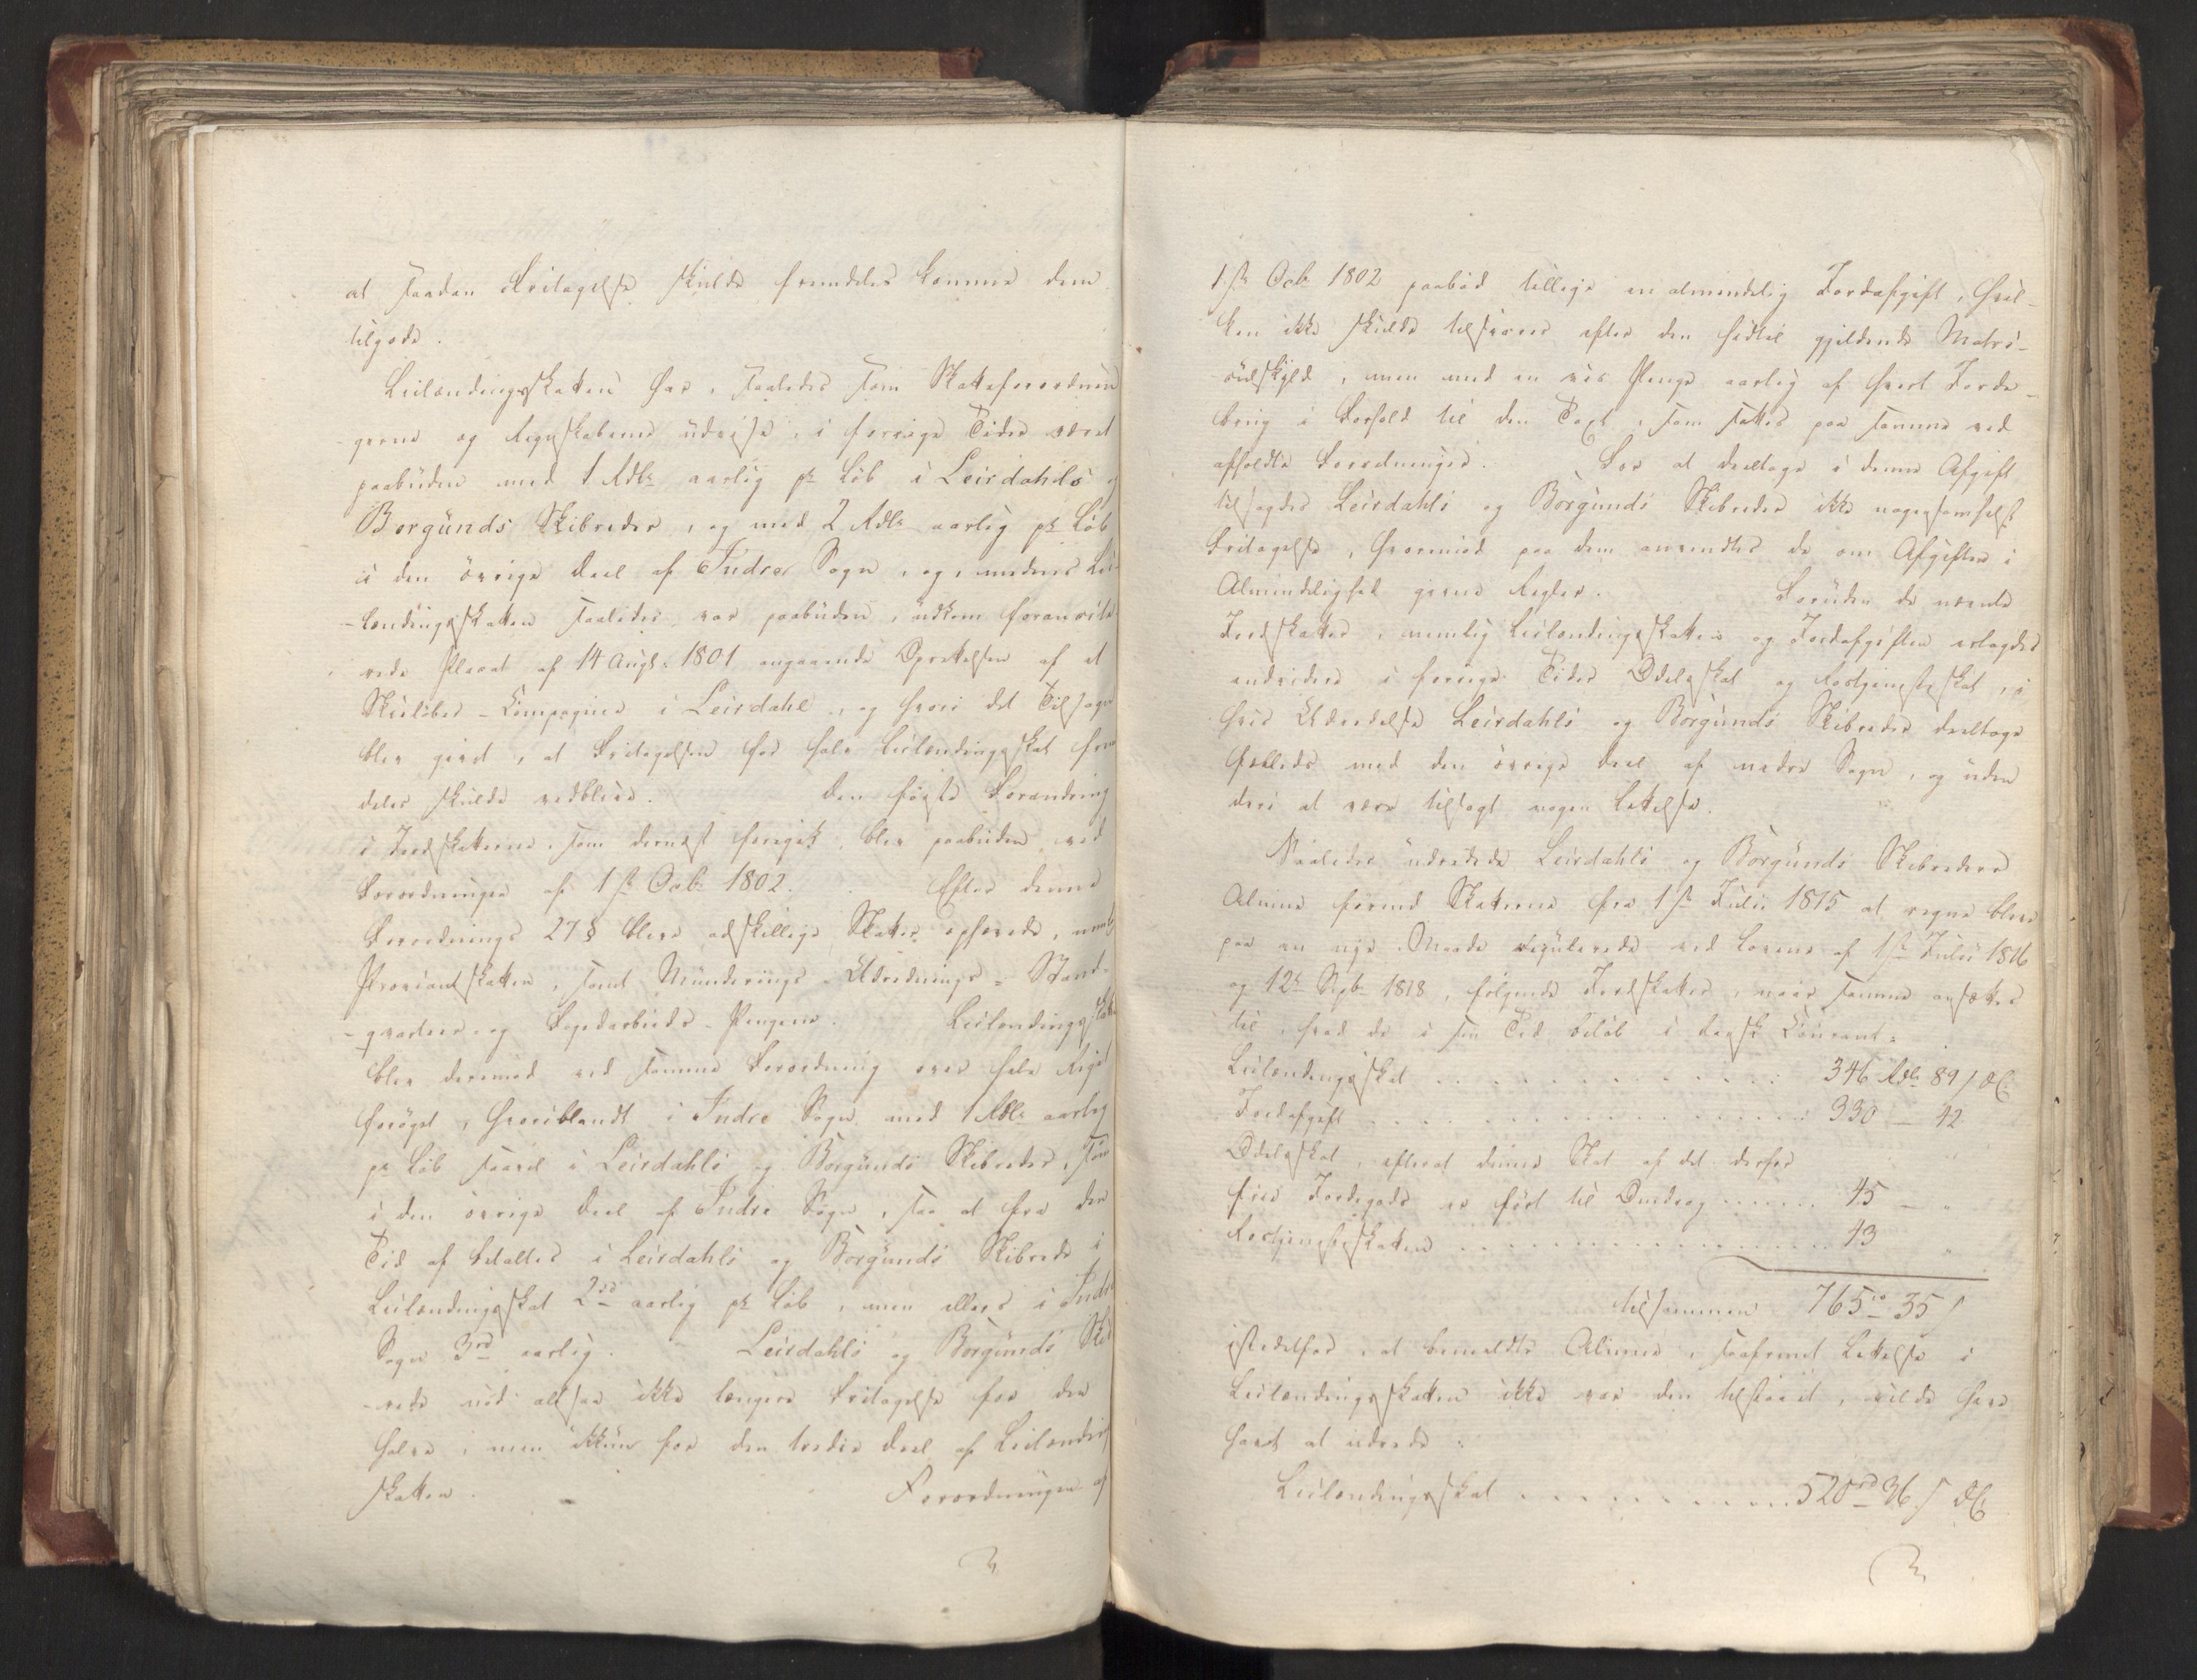 at saadan Fritagelse skulde fremdeles komme dem
tilgode.
Leilændingsskatten har, saaledes som Skatteforordnin-
gerne og Regnskaberne udvise, i forrige Tider været
paabuden med 1 Rdlr aarlig pr Løb i Leirdahls og
Borgunds Skibreder, og med 2 Rdlr aarlig pr Løb
i den øvrige Deel af Indre Sogn, og, medens Lei-
lændingsskatten saaledes var paabuden, udkom foranførte
Placat af 14 Augt: 1801 angaaende Oprettelsen af et
Skieløber-Compagnie i Leirdahl, og hvori det Tilsagn
blev givet, at Fritagelsen for halv Leilændingsskat frem-
deles skulde vedblive. Den første Forandring
i Jordskatterne, som dernæst foregik, blev paabuden ved
Forordningen af 1ste Octbr 1802. Efter denne
Forordnings 27 § bleve adskillige Skatter ophævede, nemlig
Proviantskatten, samt Munderings- Udrednings- Stand-
qvarteer- og Dagarbeids-Pengene. Leilændingsskatten
blev derimod ved samme Forordning over hele Riget
forøget, hvoriblandt i Indre Sogn med 1 Rdlr aarlig
pr Løb saavel i Leirdahls og Borgunds Skibreder, som
i den øvrige Deel af Indre Sogn, saa at fra den
Tid af betaltes i Leirdahls og Borgunds Skibrede i
Leilændingsskat 2rd aarlig pr Løb, men ellers i Indre
Sogn 3rd aarlig. Leirdahls og Borgunds Skib-
rede nød altsaa ikke længere Fritagelse for den
halve, men ikkun for den tredie Deel af Leilændings
skatten. Forordningen af
1ste Octr 1802 paabød tillige en almindelig Jordafgift, hvil-
ken ikke skulde tilsvares efter den hidtil gjeldende Matri-
culskyld, men med en vis Penge aarlig af hvert Jorde-
brug i Forhold til den Taxt, som sattes paa samme ved
afholdte Forretninger. For at deeltage i denne Afgift
tilsagdes Leirdahls og Borgunds Skibreder ikke nogensomhelst
Fritagelse, hvorimod paa dem anvendtes de om Afgiften i
Almindelighed givne Regler. Foruden de nævnte
Jordskatter, nemlig Leilændingsskatten og Jordafgiften erlagdes
endvidere i forrige Tider Odelsskat og Rostjenesteskat, i
hvis Udredelse Leirdahls og Borgunds Skibreder deeltoge
fælleds med den øvrige Deel af Indre Sogn, og uden
deri at være tilsagt nogen Lettelse.
Saaledes udredede Leirdahls og Borgunds Skibreders
Almue førend Skatterne fra 1ste Julii 1815 at regne bleve
paa en nye Maade regulerede ved Lovene af 1ste Julii 1816
og 12te Septbr 1818, følgende Jordskatter, naar samme ansættes
til, hvad de i sin Tid beløb i dansk Courant:
Leilændingsskat . . . . . . . . . . . . . 346 Rdlr 89 s DC.
Jordafgift . . . . . . . . . . . . . . . 330 — 42
Odelsskat, efterat denne Skat af det derfor
frie Jordegods er ført til Omdrag . . . . . . 45 — "
Rostjenesteskatten . . . . . . . . . . . . . 43 "
tilsammen 765rd 35 s
istedetfor, at bemeldte Almue, saafremt Lettelse i
Leilændingsskatten ikke var den tilstaaet, vilde have
havt at udrede:
Leilændingsskat . . . . . . . . . . . 520rd 36 s DC.